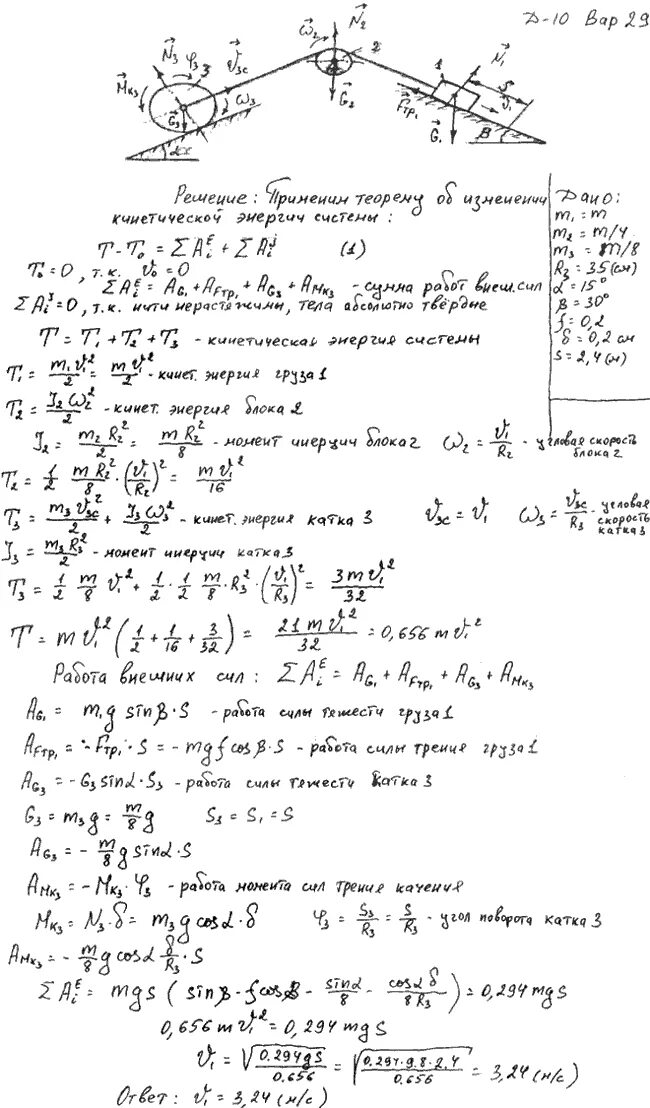 Д-10 Вар 29
N⃗₃ φ₃ 3 v⃗₃c ω⃗₂ N⃗₂ 2 N⃗₁ S
M⃗к₃ ω⃗₃ G⃗₃ G⃗₂ 1 F⃗тр₁ v⃗₁ G⃗₁
α β
Решение: Применим теорему об изменении
кинетической энергии системы:
T - T₀ = ΣAᵢᴱ + ΣAᵢʲ (1)
T₀ = 0, т.к. v₀ = 0
ΣAᵢᴱ = A_G₁ + A_Fтр₁ + A_G₃ + A_Mк₃ - сумма работ внеш. сил
ΣAᵢʲ = 0, т.к. нити нерастяжимы, тела абсолютно твёрдые
Дано:
m₁ = m
m₂ = m/4
m₃ = m/8
R₃ = 35 (см)
α = 15°
β = 30°
f = 0,2
δ = 0,2 см
S = 2,4 (м)
T = T₁ + T₂ + T₃ - кинетическая энергия системы
T₁ = m₁v₁²/2 = mv₁²/2 - кинет. энергия груза 1
T₂ = J₂ω₂²/2 - кинет. энергия блока 2
J₂ = m₂R₂²/2 = mR₂²/8 - момент инерции блока 2 ω₂ = v₁/R₂ - угловая скорость блока 2
T₂ = 1/2 mR₂²/8 · (v₁/R₂)² = mv₁²/16
T₃ = m₃v₃c²/2 + J₃ω₃²/2 - кинет. энергия катка 3 v₃c = v₁ ω₃ = v₃c/R₃ - угловая скорость катка 3
J₃ = m₃R₃²/2 - момент инерции катка 3
T₃ = 1/2 m/8 v₁² + 1/2 · 1/2 m/8 · R₃² · (v₁/R₃)² = 3mv₁²/32
T = mv₁² (1/2 + 1/16 + 3/32) = 21mv₁²/32 = 0,656 mv₁²
Работа внешних сил: ΣAᵢᴱ = A_G₁ + A_Fтр₁ + A_G₃ + A_Mк₃
A_G₁ = m₁g sinβ · S - работа силы тяжести груза 1
A_Fтр₁ = -Fтр₁ · S = -mgf cosβ · S - работа силы трения груза 1
A_G₃ = -G₃ sinα · S₃ - работа силы тяжести катка 3
G₃ = m₃g = m/8 g S₃ = S₁ = S
A_G₃ = - m/8 g sinα · S
A_Mк₃ = -Mк₃ · φ₃ - работа момента сил трения качения
Mк₃ = N₃ · δ = m₃g cosα · δ φ₃ = S₃/R₃ = S/R₃ - угол поворота катка 3
A_Mк₃ = - m/8 g cosα δ/R₃ · S
ΣAᵢᴱ = mgS (sinβ - f cosβ - sinα/8 - cosα δ/8R₃) = 0,294 mgS
0,656 mv₁² = 0,294 mgS
v₁ = √(0.294gS/0.656) = √(0.294·9.8·2.4/0.656) = 3,24 (м/с)
Ответ: v₁ = 3,24 (м/с)